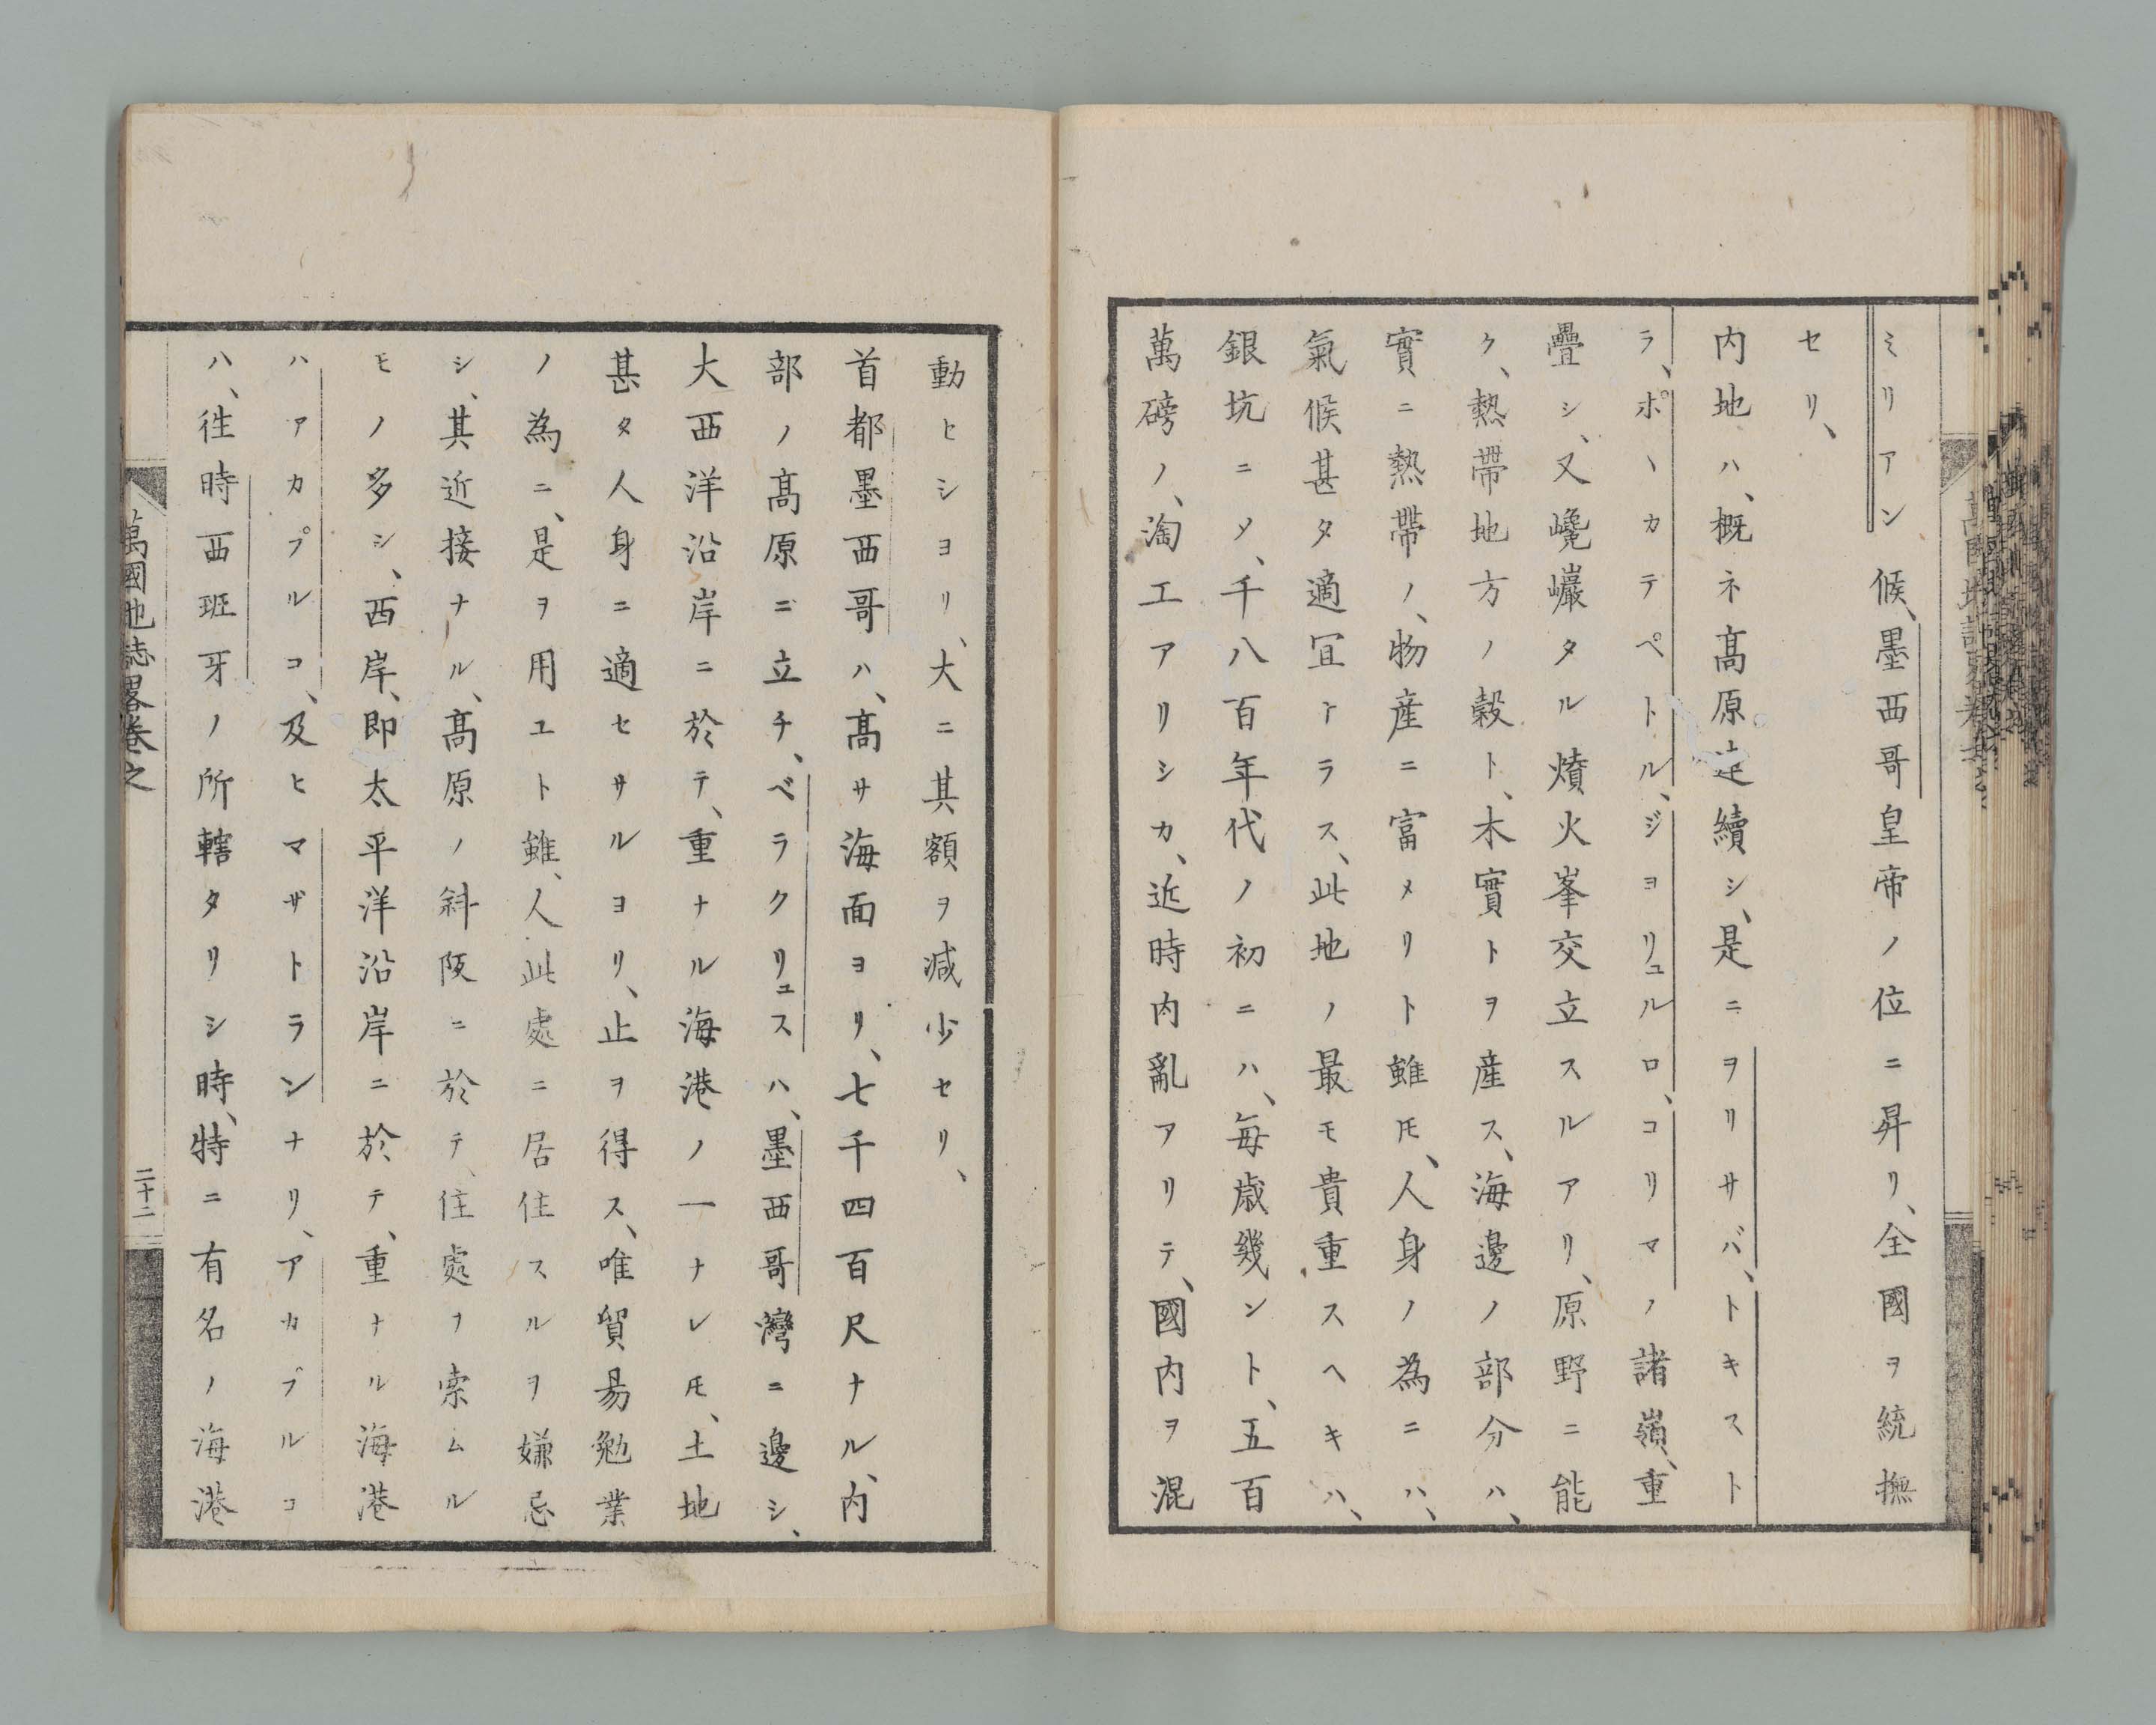 ミリアン候、墨西哥皇帝ノ位ニ昇リ、全國ヲ統撫
セリ、
内地ハ、概ネ高原連續シ、是ニヲリサバ、トキスト
ラ、ポヽカテペトル、ジヨリュルロ、コリマノ諸嶺、重
疊シ、又巉巖タル燌火峯交立スルアリ、原野ニ能
ク、熱帶地方ノ穀ト、木實トヲ産ス、海邊ノ部分ハ、
實ニ熱帶ノ、物産ニ富メリト雖𪜈、人身ノ為ニハ、
氣候甚タ適冝ナラス、此地ノ最モ貴重スヘキハ、
銀坑ニメ、千八百年代ノ初ニハ、毎歳幾ント、五百
萬磅ノ、淘工アリシカ、近時内亂アリテ、國内ヲ混
動ヒシヨリ、大ニ其額ヲ減少セリ、
首都墨西哥ハ、高サ海面ヨリ、七千四百尺ナル、内
部ノ高原ニ立チ、ベラクリュスハ、墨西哥灣ニ邊シ、
大西洋沿岸ニ於テ、重ナル海港ノ一ナレ𪜈、土地
甚タ人身ニ適セサルヨリ、止ヲ得ス、唯貿昜勉業
ノ為ニ、是ヲ用ユト雖、人此處ニ居住スルヲ嫌忌
シ、其近接ナル、高原ノ斜阪ニ於テ、住處ヲ索ムル
モノ多シ、西岸、即太平洋沿岸ニ於テ、重ナル海港
ハアカプルコ、及ヒマザトランナリ、アカプルコ
ハ、徃時西班牙ノ所轄タリシ時、特ニ有名ノ海港
萬國地誌畧卷之
二十二